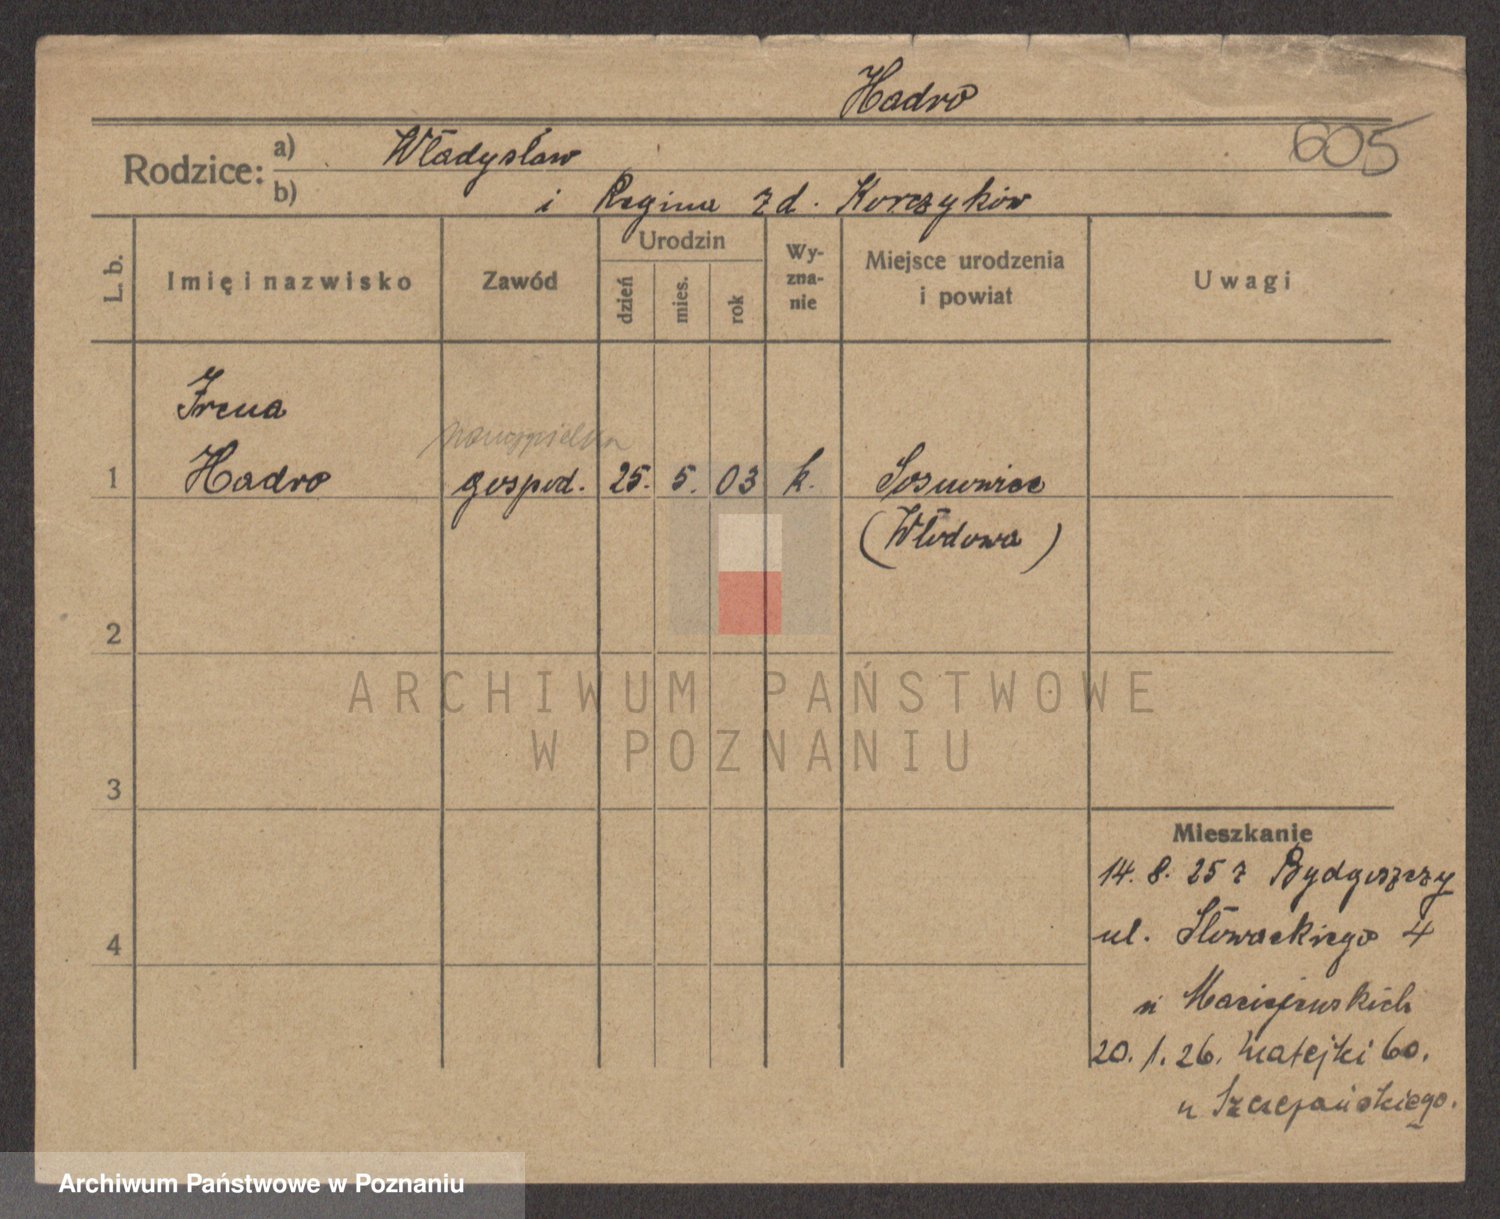 Hadro
605
Rodzice: a) Władysław
b) i Regina z d. Korczyków
L. b.
Imię i nazwisko
Zawód
Urodzin
dzień
mies.
rok
Wy-
zna-
nie
Miejsce urodzenia
i powiat
Uwagi
Irena
1 Hadro gospod. 25. 5. 03 k. Sosnowice
(Włodowa)
2
3
4
ARCHIWUM PAŃSTWOWE
W POZNANIU
Mieszkanie
14. 8. 25 z Bydgoszczy
ul. Słowackiego 4
u Maciejewskich
20. 1. 26. Matejki 60.
u Szczepańskiego.
Archiwum Państwowe w Poznaniu